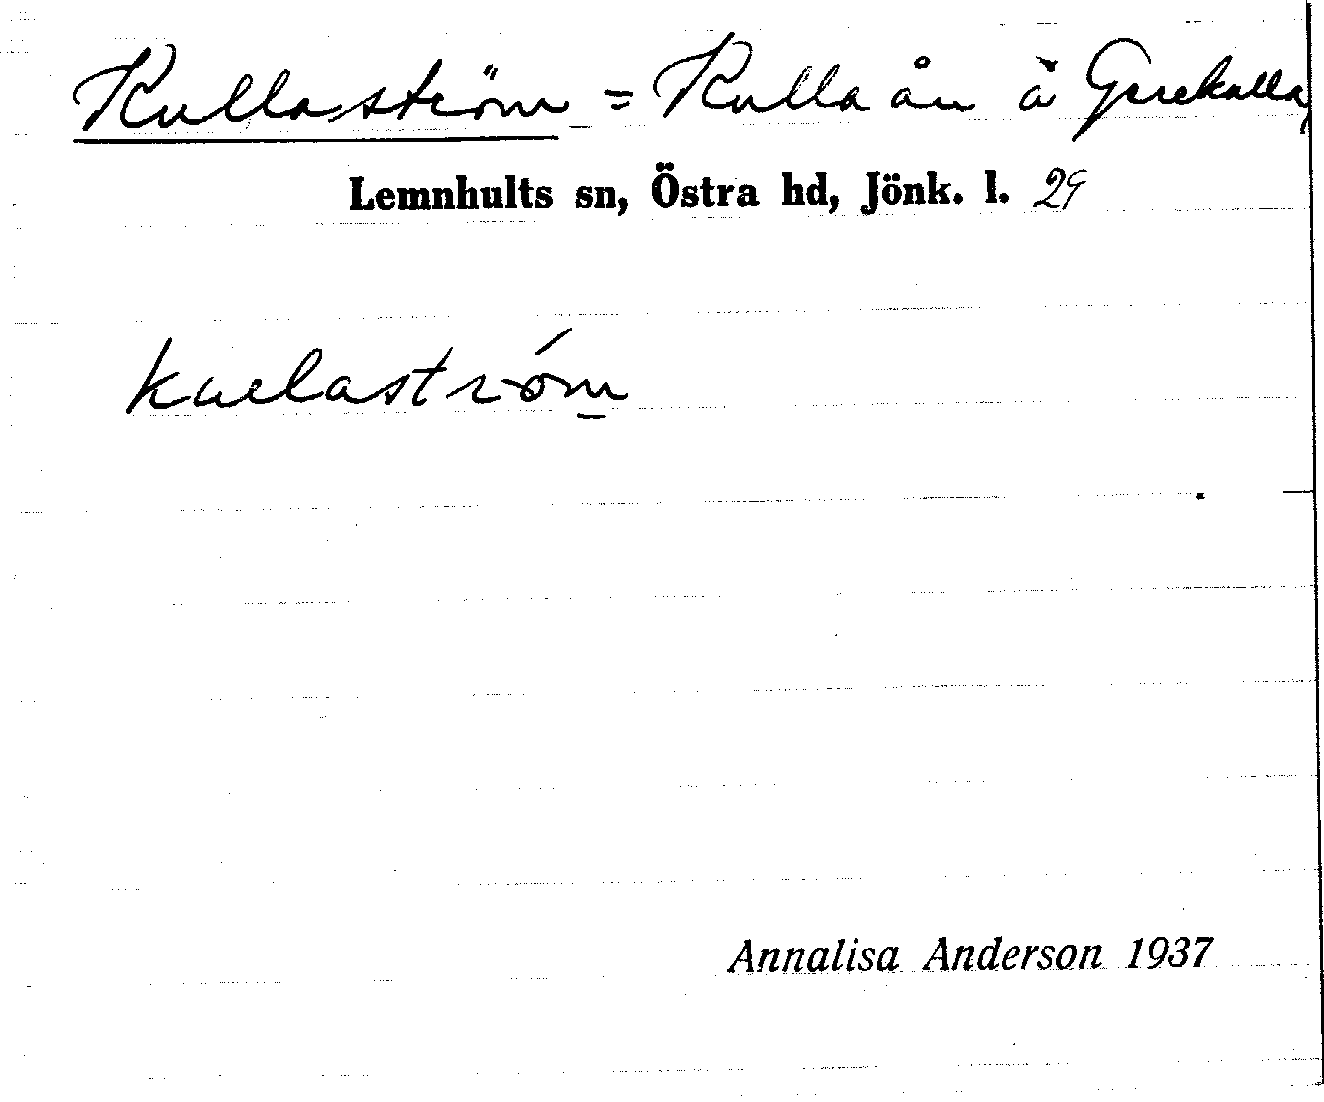 Kullaström = Kulla ån å
Lemnhults sn, Östra hd, Jönk. l. 29
Annalisa Anderson 1937